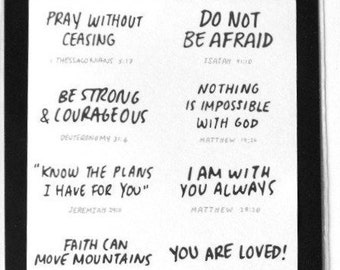 PRAY WITHOUT
CEASING
THESSALONIANS 5:17
DO NOT
BE AFRAID
ISAIAH 41:10
BE STRONG
& COURAGEOUS
DEUTERONOMY 31:6
NOTHING
IS IMPOSSIBLE
WITH GOD
MATTHEW 19:26
"KNOW THE PLANS
I HAVE FOR YOU"
JEREMIAH 29:11
I AM WITH
YOU ALWAYS
MATTHEW 28:20
FAITH CAN
MOVE MOUNTAINS
YOU ARE LOVED!